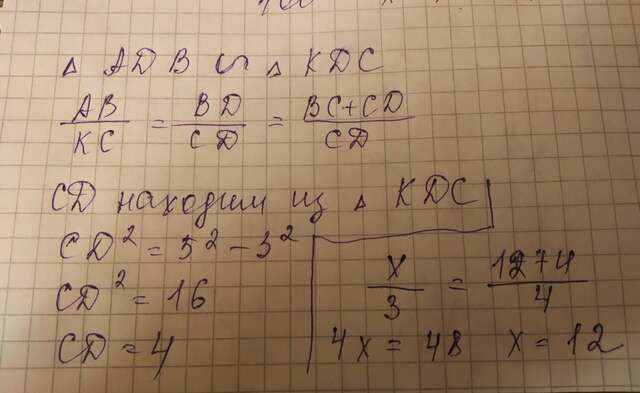 △ ADB ∽ △ KDC
AB/KC = BD/CD = BC+CD/CD
CD находим из △ KDC
CD² = 5² - 3²
CD² = 16
CD = 4
x/3 = 12+4/4
4x = 48 x = 12